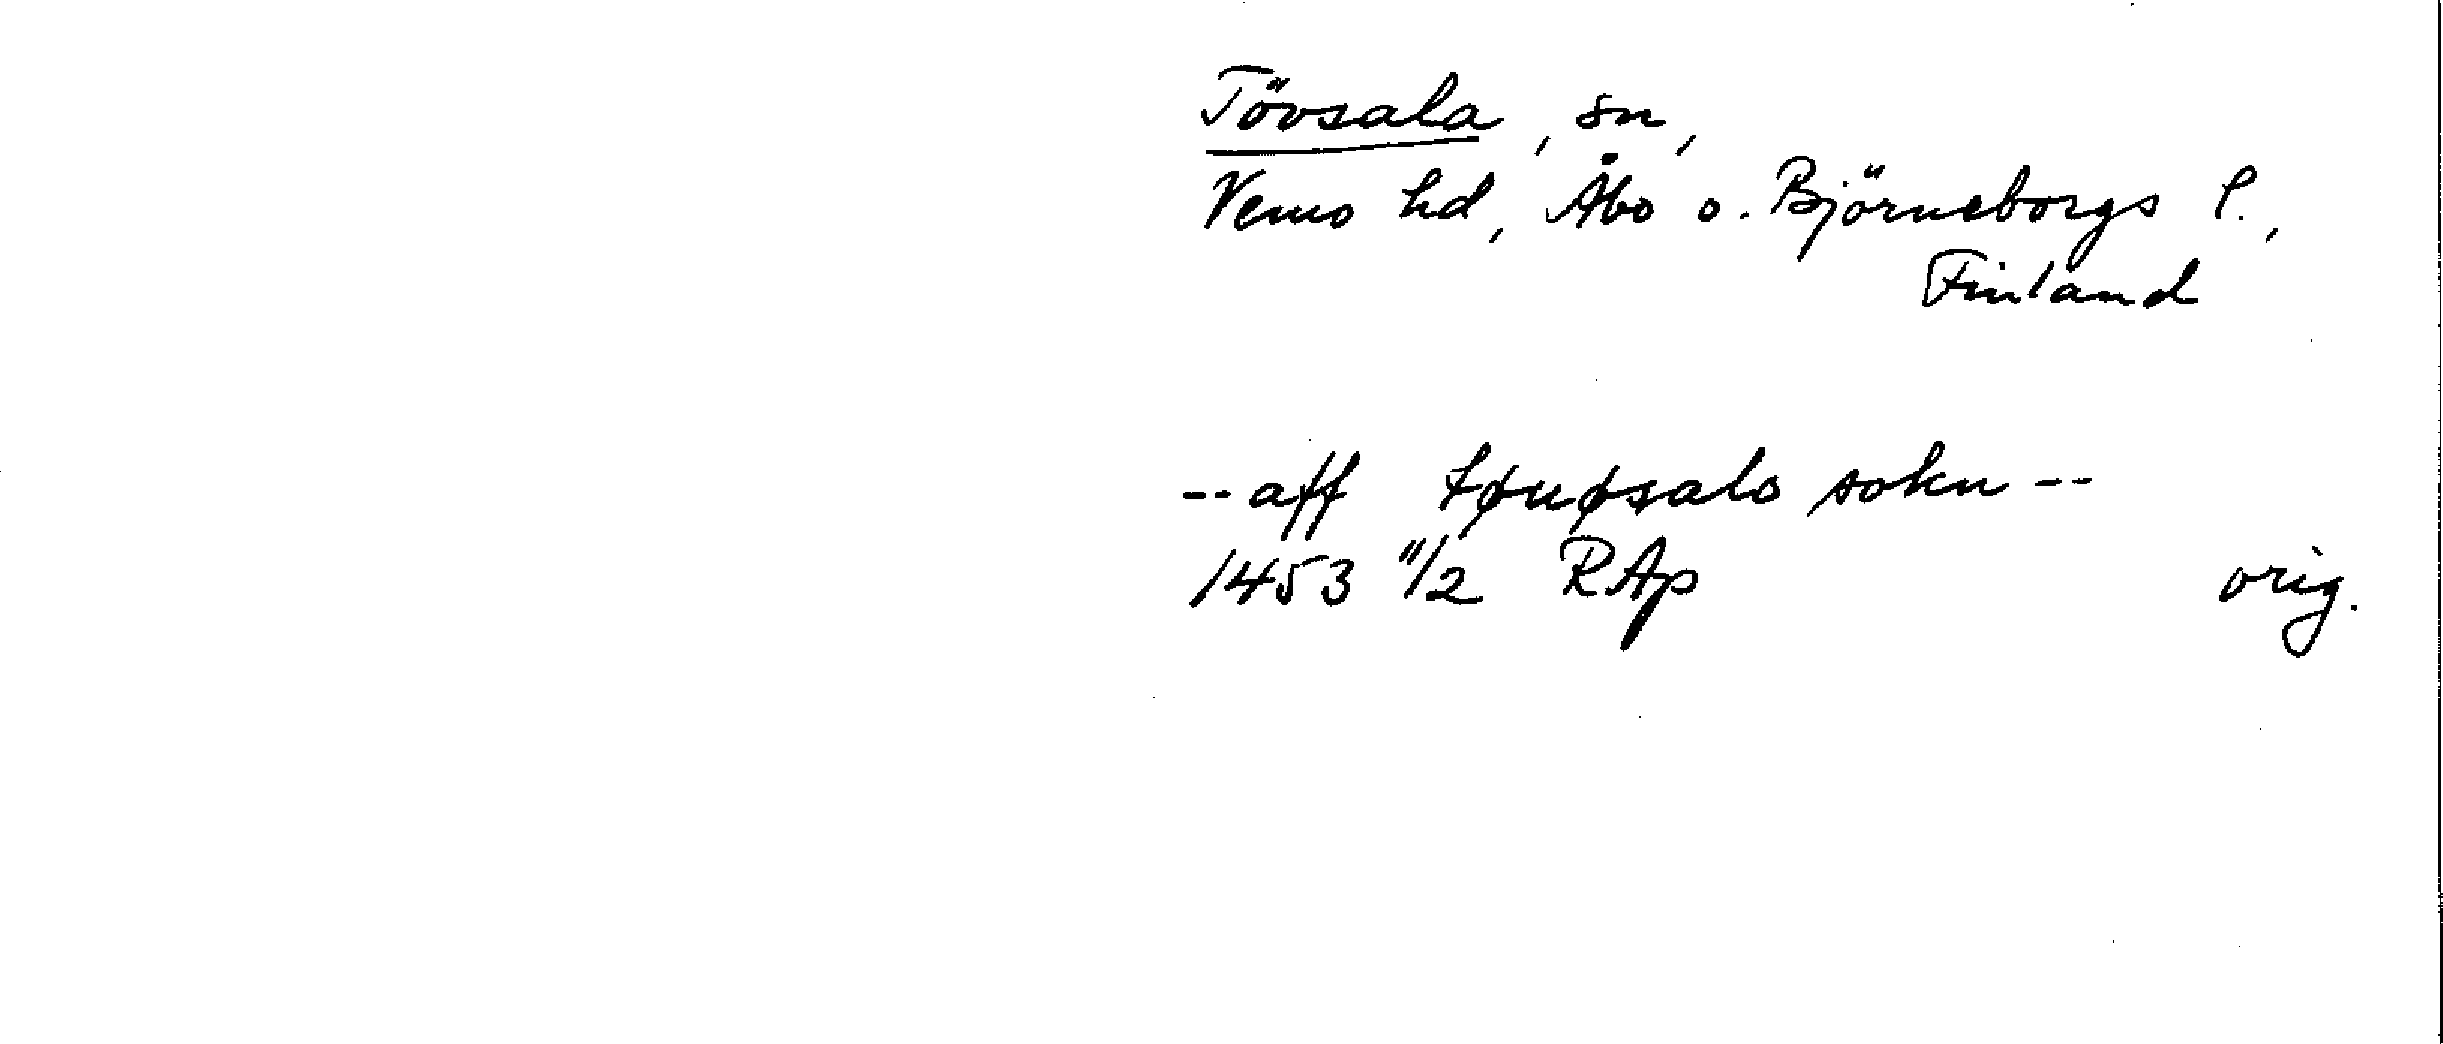 Tövsala, sn,
Vemo hd, Åbo o. Björneborgs l.,
Finland
-- aff tøuøsalo sokn --
1453 11/2 RAp orig.